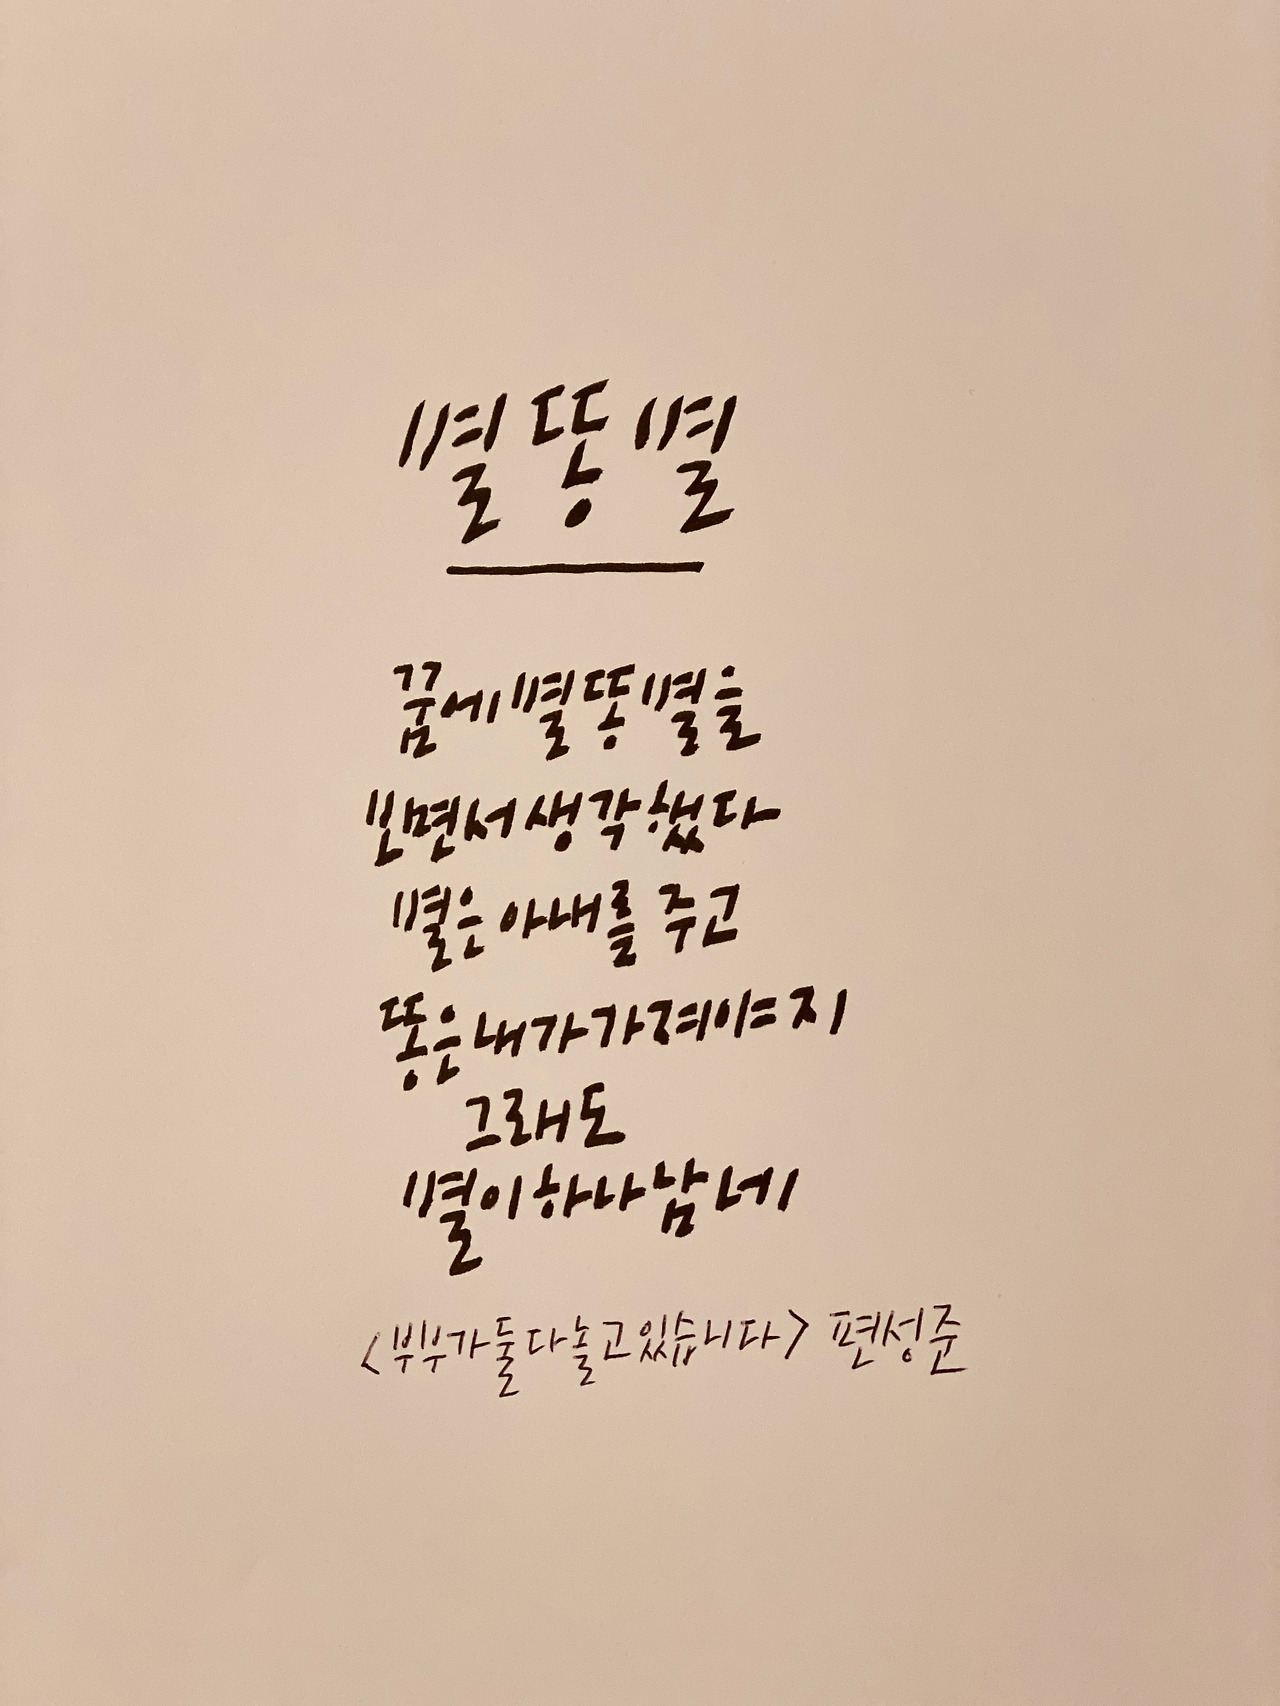 별똥별
꿈에 별똥별을
보면서 생각했다
별은 아내를 주고
똥은 내가 가져야지
그래도
별이 하나 남네
<부부가 둘 다 놀고 있습니다> 편성준